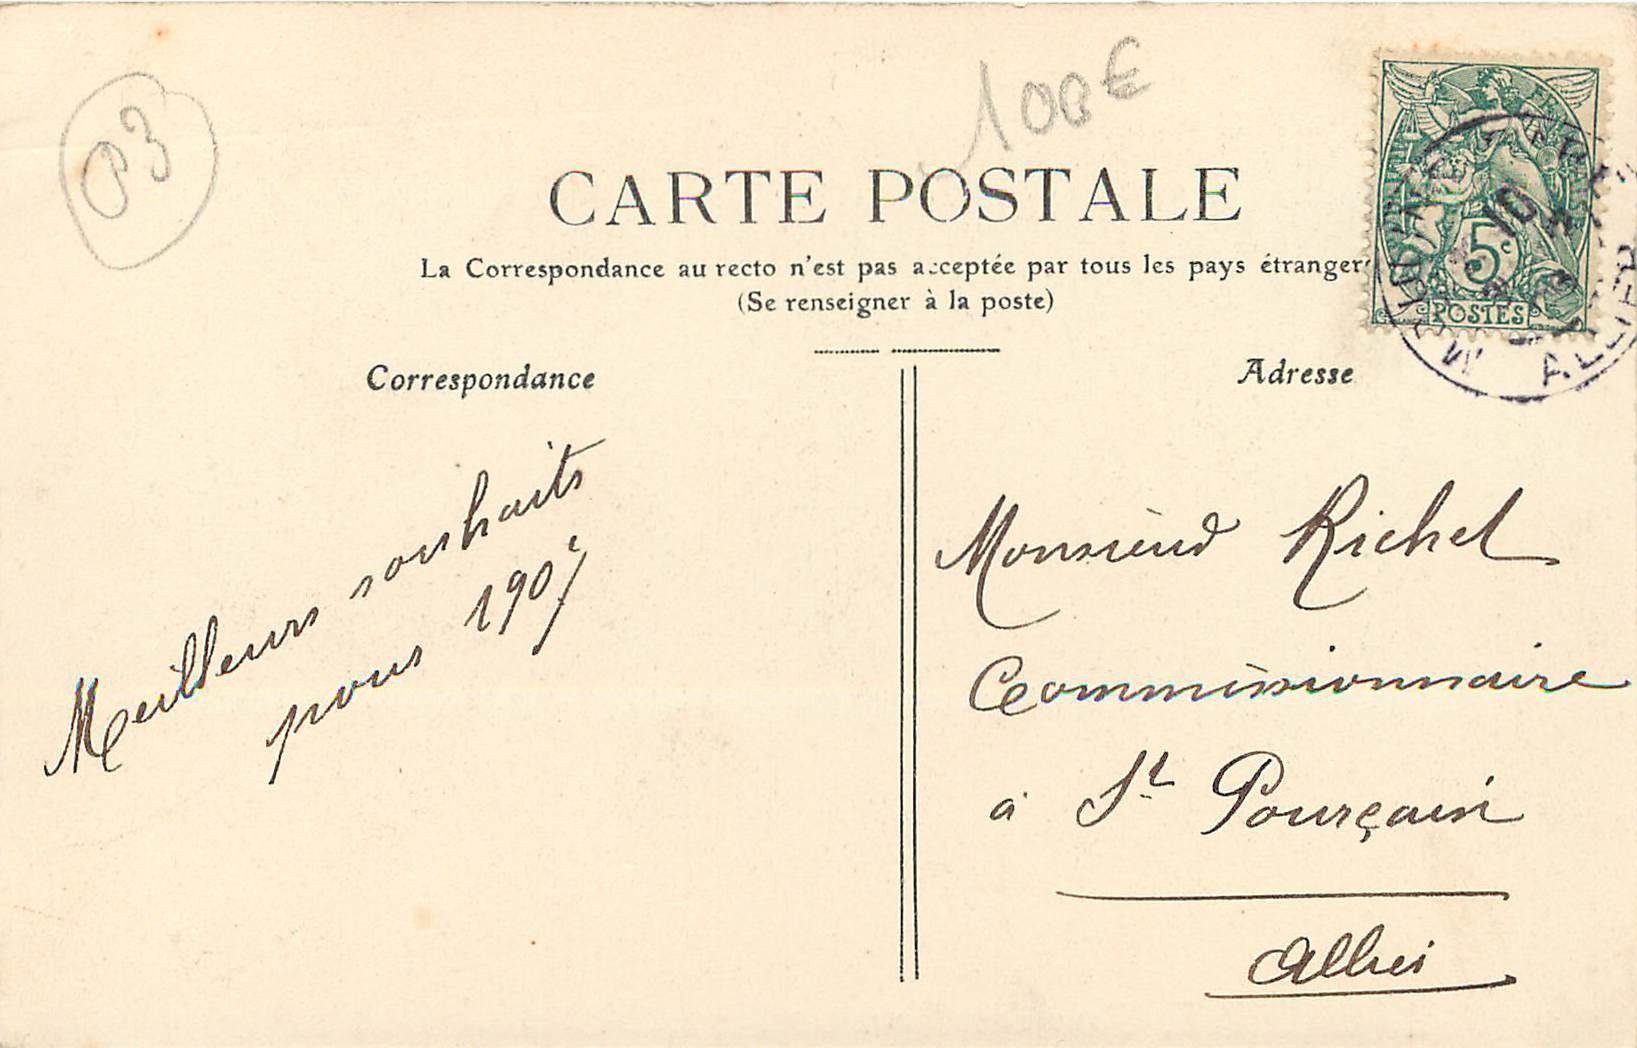 P3
100€
CARTE POSTALE
La Correspondance au recto n'est pas acceptée par tous les pays étrangers
(Se renseigner à la poste)
Correspondance
Adresse
5c
POSTES
ALLIER
Meilleurs souhaits
pour 1907
Monsieur Richel
Commissionnaire
à St Pourçain
Allier